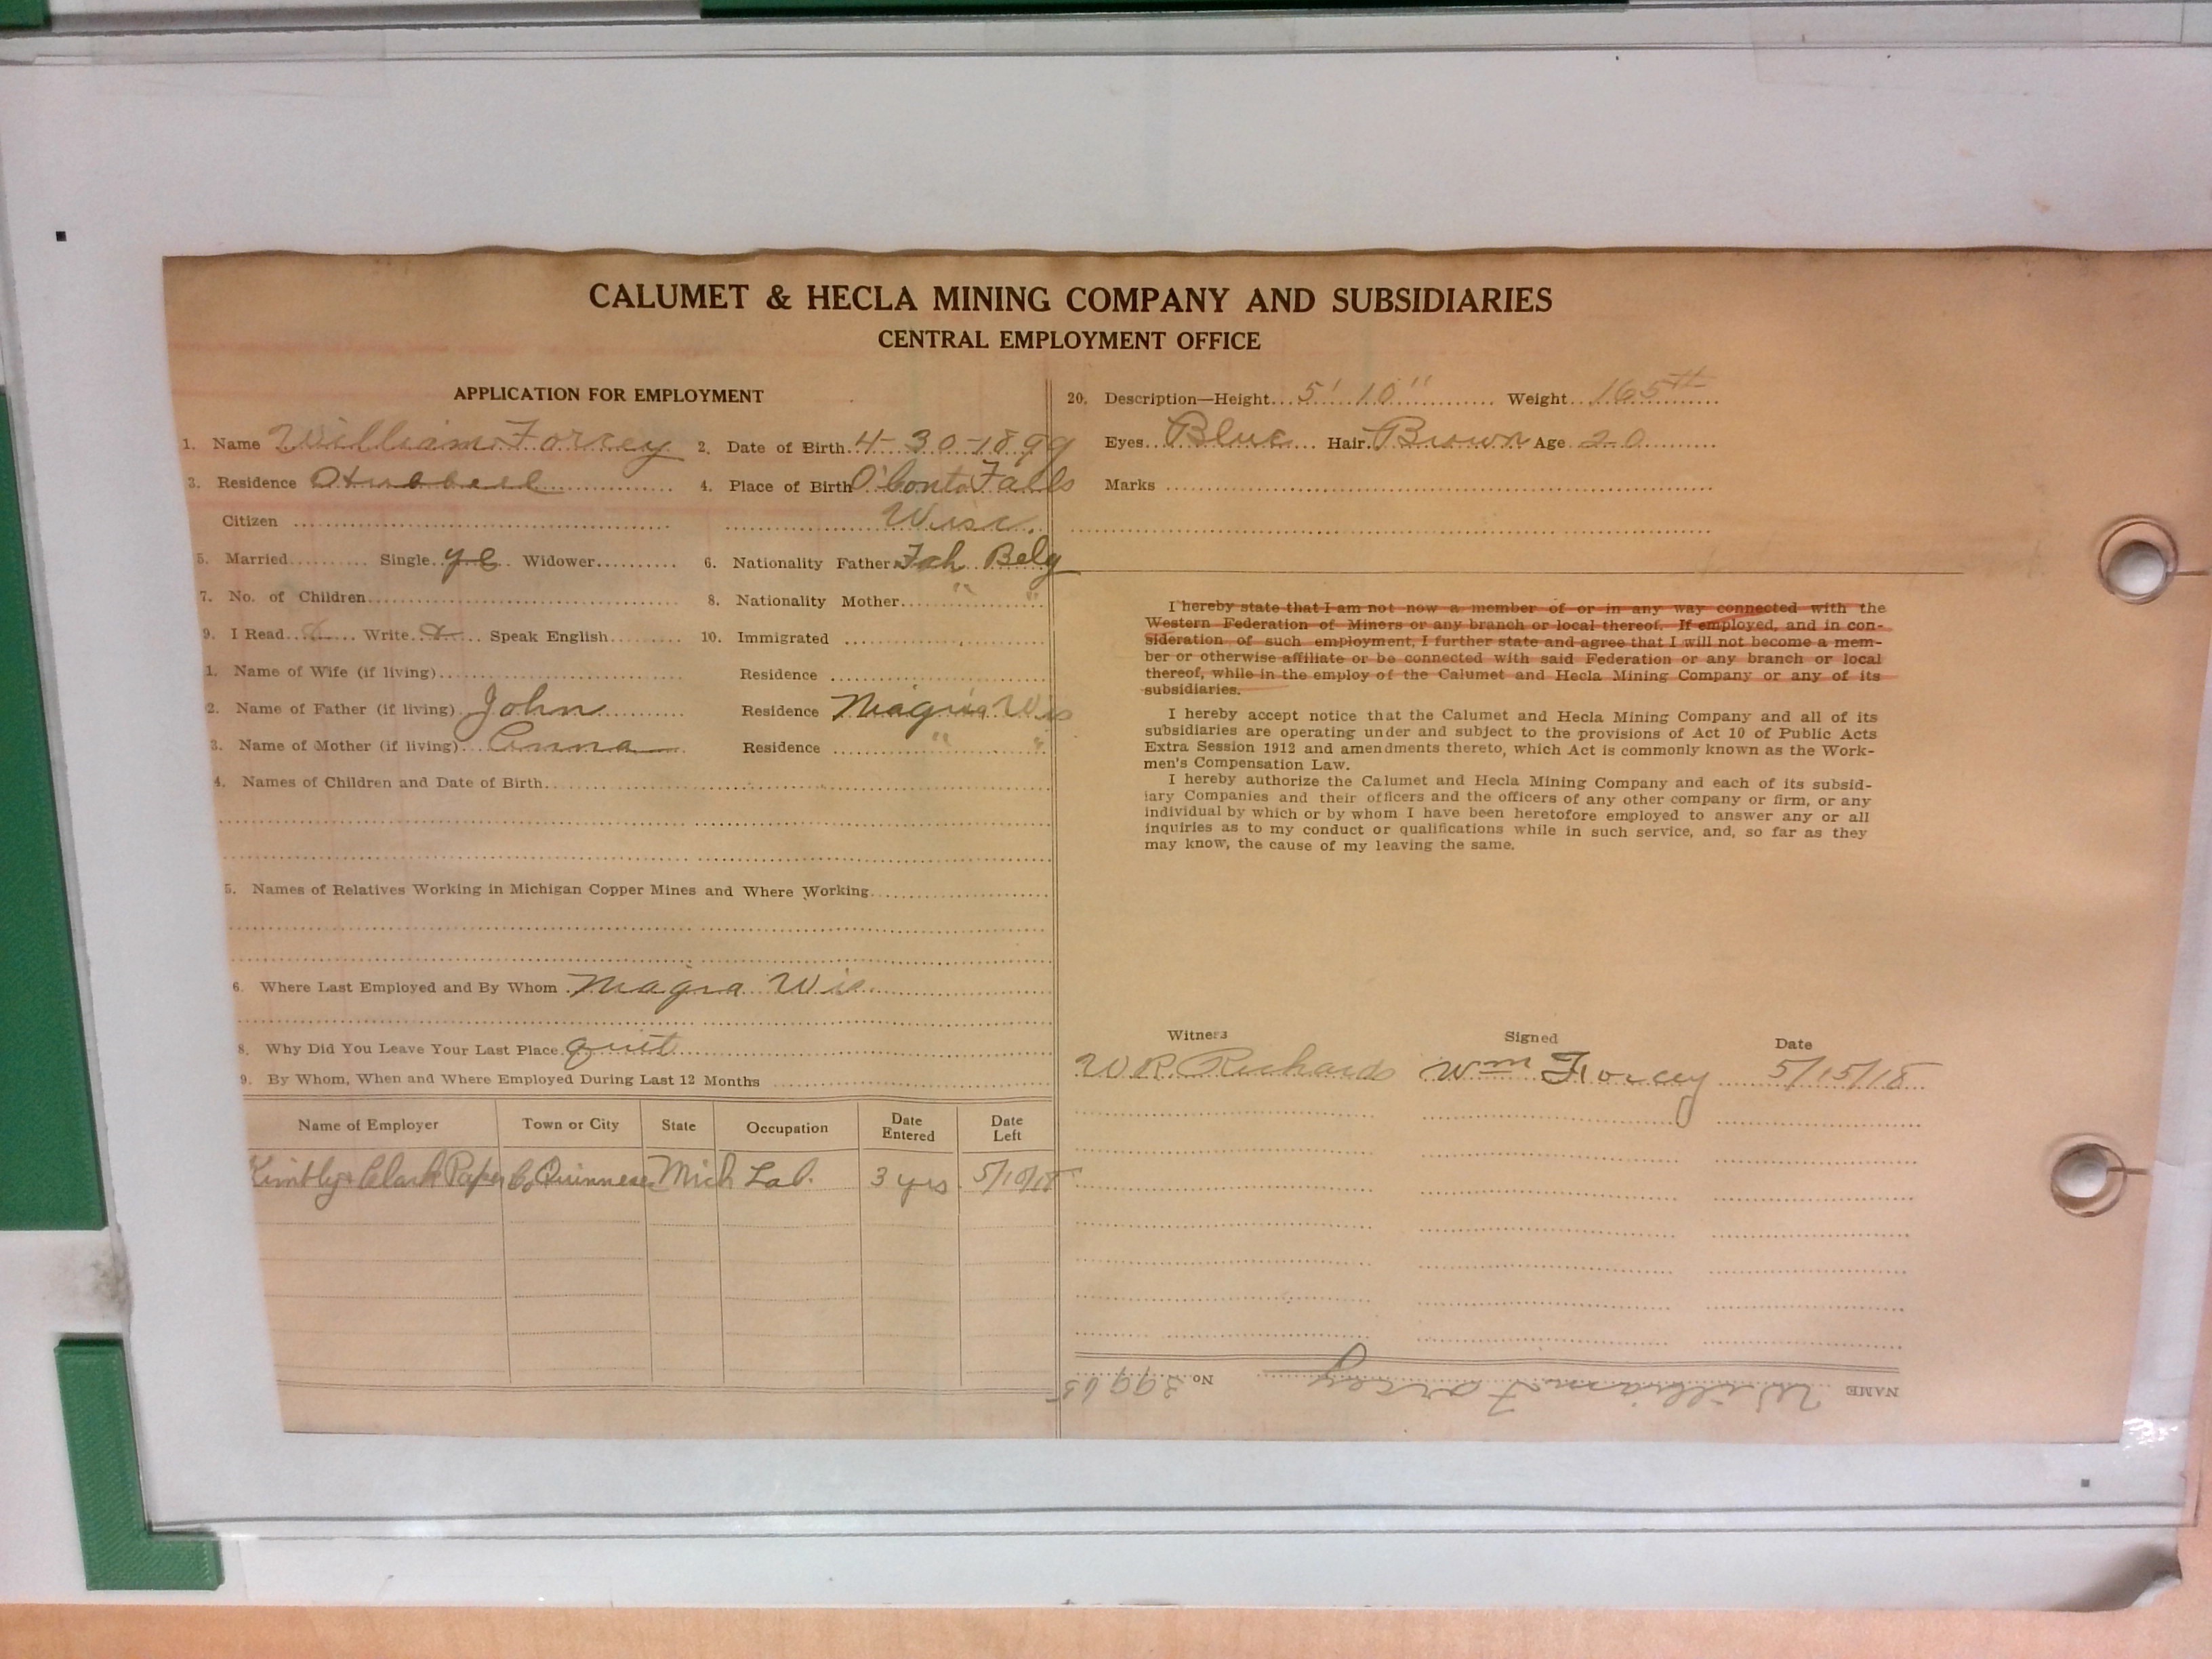 CALUMET & HECLA MINING COMPANY AND SUBSIDIARIES
CENTRAL EMPLOYMENT OFFICE
APPLICATION FOR EMPLOYMENT
1. Name William Forcey 2. Date of Birth 4-30-1899
3. Residence Hubbell 4. Place of Birth O'Conto Falls
Citizen Wisc.
5. Married Single Widower 6. Nationality Father Fch Belg
7. No. of Children 8. Nationality Mother " "
9. I Read Write Speak English 10. Immigrated
1. Name of Wife (if living) Residence
2. Name of Father (if living) John Residence Niagria Wis
3. Name of Mother (if living) Anna Residence " "
4. Names of Children and Date of Birth
5. Names of Relatives Working in Michigan Copper Mines and Where Working
6. Where Last Employed and By Whom Niagra Wis
8. Why Did You Leave Your Last Place quit
9. By Whom, When and Where Employed During Last 12 Months
Name of Employer Town or City State Occupation Date Entered Date Left
Kimbly & Clark Paper Co Quinnesec Mich Lab. 3 yrs 5/10/18
20. Description—Height 5' 10" Weight 165
Eyes Blue Hair Brown Age 20
Marks
I hereby state that I am not now a member of or in any way connected with the
Western Federation of Miners or any branch or local thereof. If employed, and in con-
sideration of such employment, I further state and agree that I will not become a mem-
ber or otherwise affiliate or be connected with said Federation or any branch or local
thereof, while in the employ of the Calumet and Hecla Mining Company or any of its
subsidiaries.
I hereby accept notice that the Calumet and Hecla Mining Company and all of its
subsidiaries are operating under and subject to the provisions of Act 10 of Public Acts
Extra Session 1912 and amendments thereto, which Act is commonly known as the Work-
men's Compensation Law.
I hereby authorize the Calumet and Hecla Mining Company and each of its subsid-
iary Companies and their officers and the officers of any other company or firm, or any
individual by which or by whom I have been heretofore employed to answer any or all
inquiries as to my conduct or qualifications while in such service, and, so far as they
may know, the cause of my leaving the same.
Witness Signed Date
W.R. Richards Wm Forcey 5/15/18
NAME William Forcey No. 39965